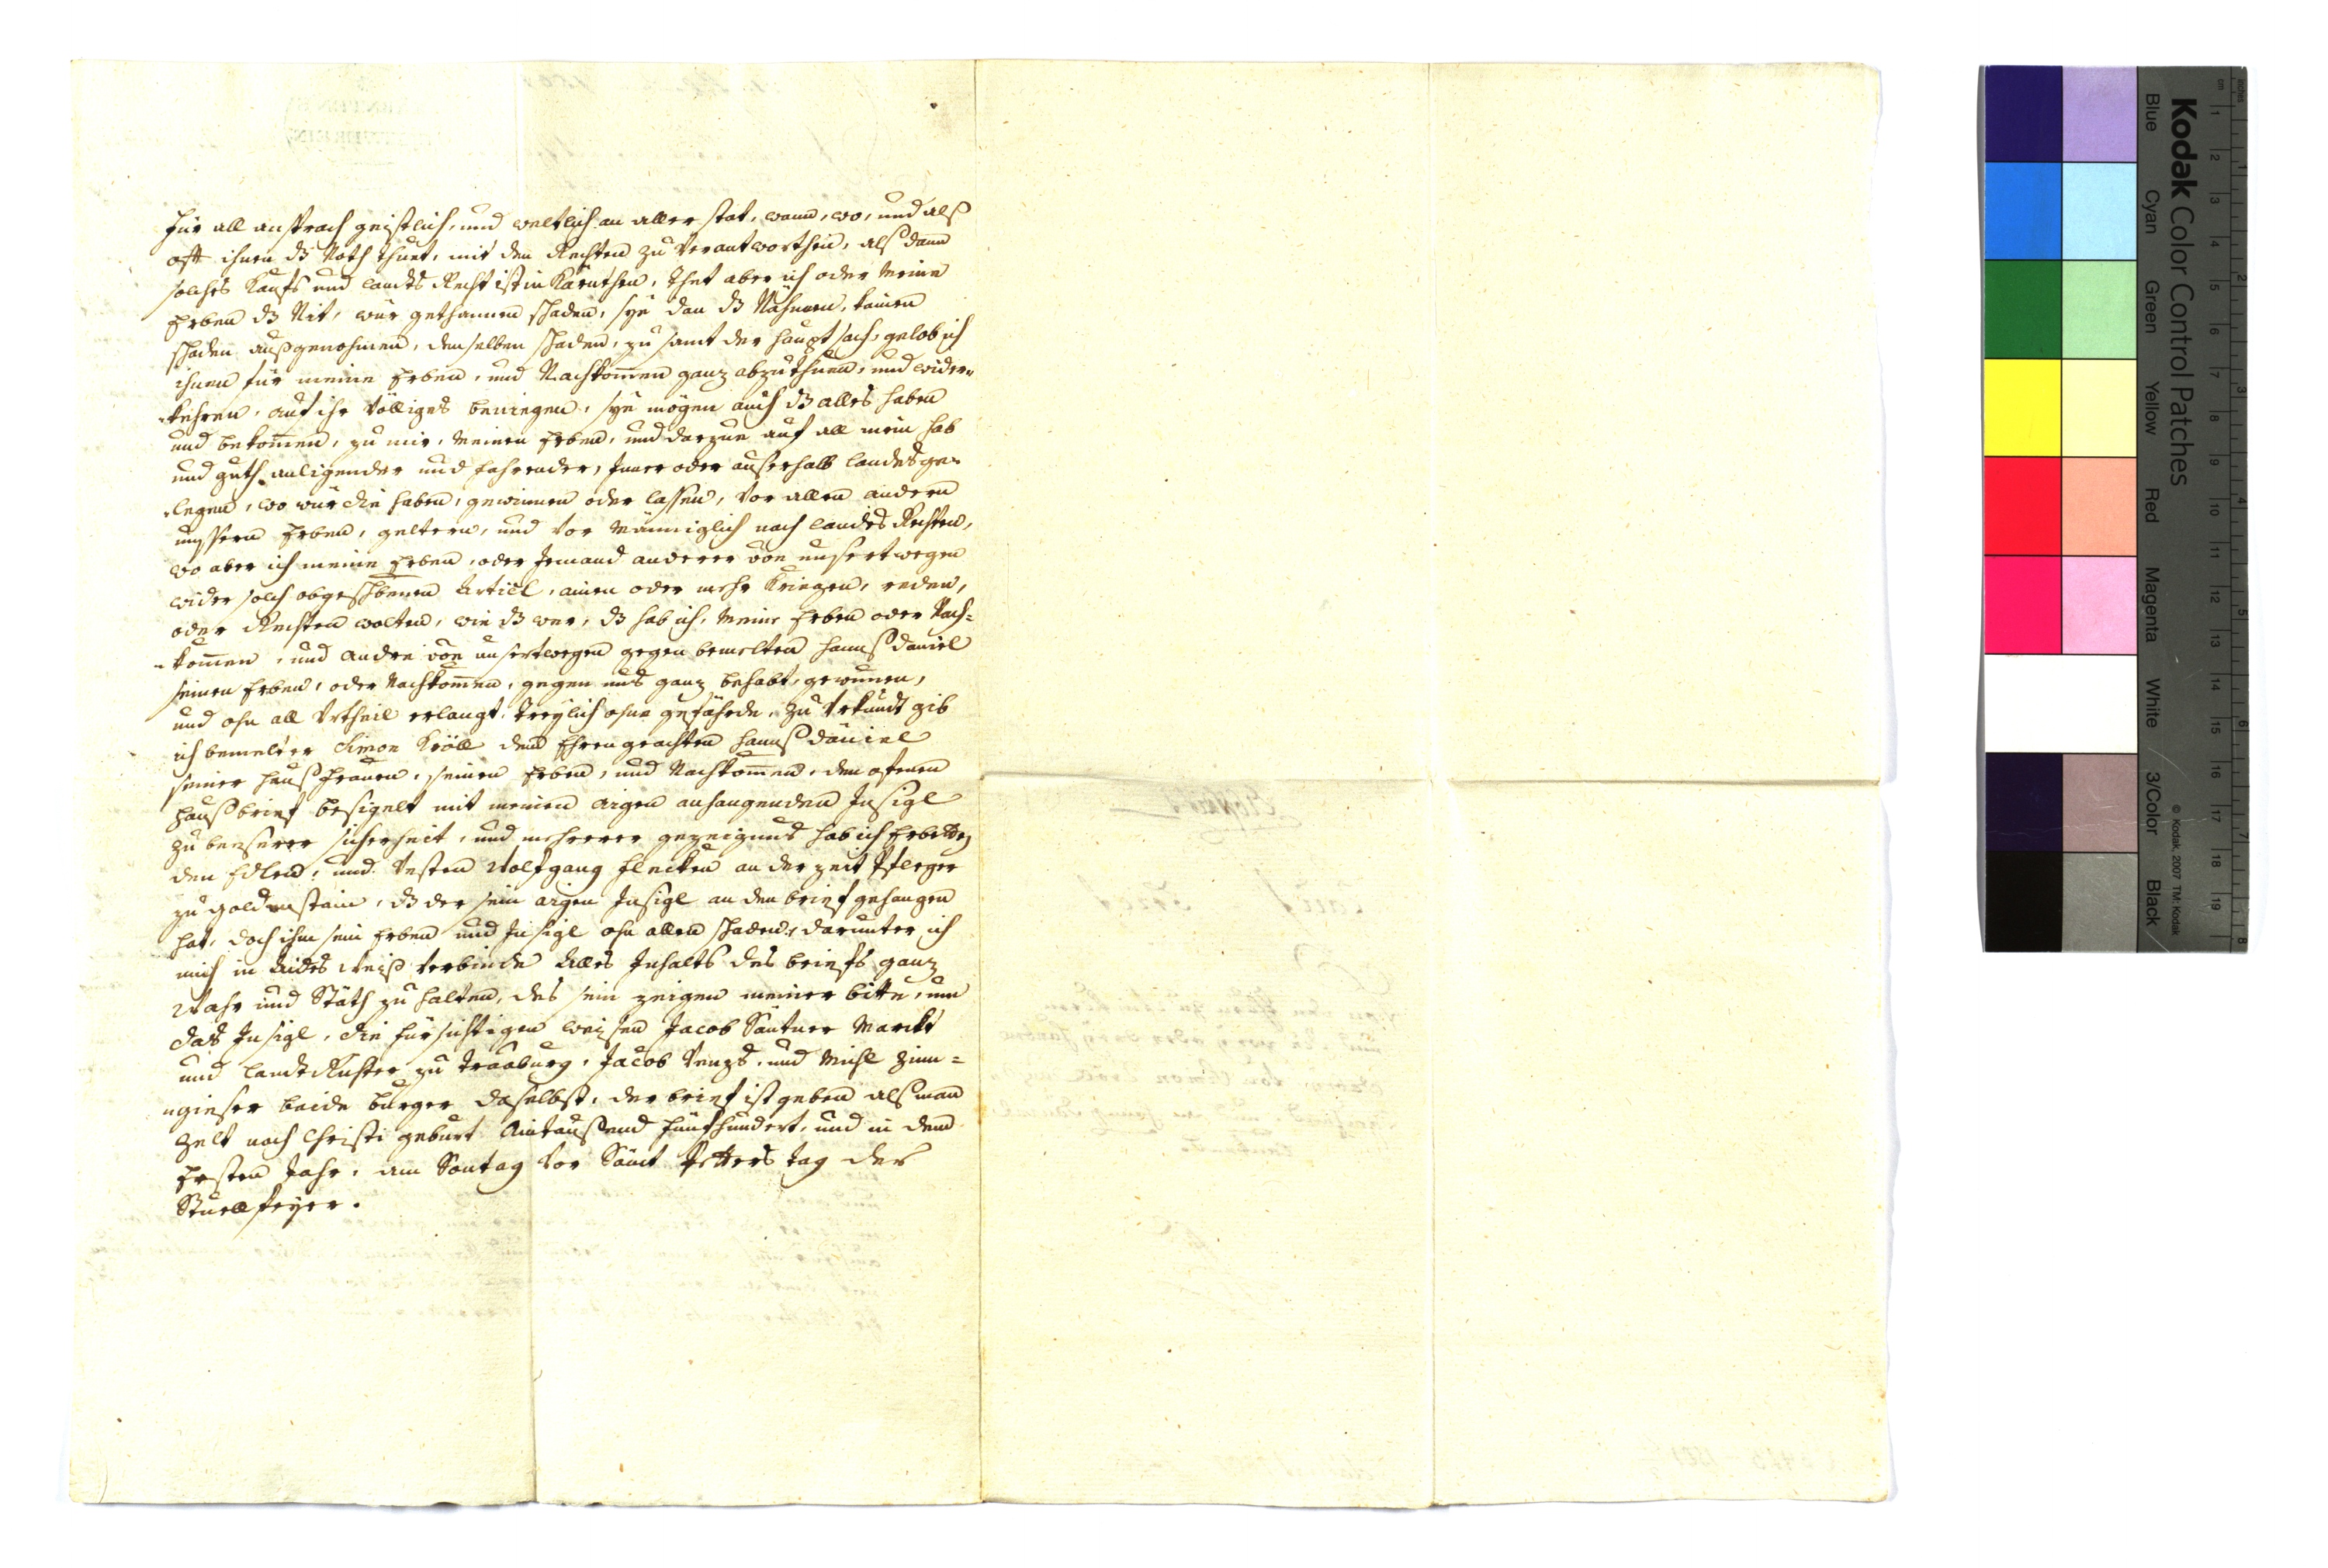 für all ansprach geistlich, und weltlich an aller stat, wann, wo, und alß
oft ihnen dz Noth thuet, mit den Rechten zu verantworthen, alß dann
solches Kaufs und landts Recht ist in Kärnthen, thet aber ich oder meine
Erben dz Nit, wür gethannen schaden, sye dan dz Nähmen, kainen
schaden außgenohmen, denselben schaden, zu samt der haupt sach, gelob ich
ihnen für meine Erben, und Nachkomen ganz abzuthuen, und wider-
-kehren, auf ihr völliges beniegen, sye mögen auch dz alles haben
und bekomen, zu mir, meinen Erben, und darzue auf all mein hab
und guth anligender und fahrender, Inner oder ausserhalb landts ge-
-legen, wo wür die haben, gewinnen oder lassen, vor allen andern
unssern Erben, geltern, und vor männiglich nach landts Rechten,
wo aber ich meine Erben, oder Jemand anderer von unsertwegen
wider solch obgeschbenen Articl, ainen oder mehr kriegen, reden,
oder Rechten wolten, wie dz wer, dz hab ich, meine Erben oder Nach-
-komen, und andre von unsertwegen gegen bemelten Hannß Daniel
seinen Erben, oder Nachkomen, gegen uns ganz behabt, gewunen,
und ohn all Urtheil erlangt, treylich ohne gefährde, zu Urkundt gib
ich bemelter Simon Kröll dem Ehrengeachten Hannß Däniel
seiner haußfrauen, seinen Erben, und Nachkomen, den ofenen
haußbrief besigelt mit meinen aigen anhangenden Insigl
zu besserer sicherheit, und mehrerer gezeignus hab ich Erbetten
den Edlen, und Vesten Wolfgang Flecken an der zeit Pfleger
zu Goldenstain, dz der sein aigen Insigl an den brief gehangen
hat, doch ihm sein Erben und Insigl ohn allen schaden, darunter ich
mich in Aides Weiß verbinde Alles Inhalts des briefs ganz
Wahr und Stäth zu halten, des sein zeigen meiner bitte, um
das Insigl, die fürsichtigen weisen Jacob Säntner Marckt
und landt Richter zu Traaburg, Jacob Venzs, und Michl Zinn-
-gieser beide burger daselbst, der brief ist geben alß man
zelt nach Christi geburt Aintaußend fünfhundert, und in dem
Ersten Jahr, am Sontag vor Sanct Petters tag der
Stuellfeyer.
Kodak Color Control Patches
Blue
Cyan
Green
Yellow
Red
Magenta
White
3/Color
Black
© Kodak, 2007 TM: Kodak
inches
cm
1 2 3 4 5 6 7 8
1 2 3 4 5 6 7 8 9 10 11 12 13 14 15 16 17 18 19